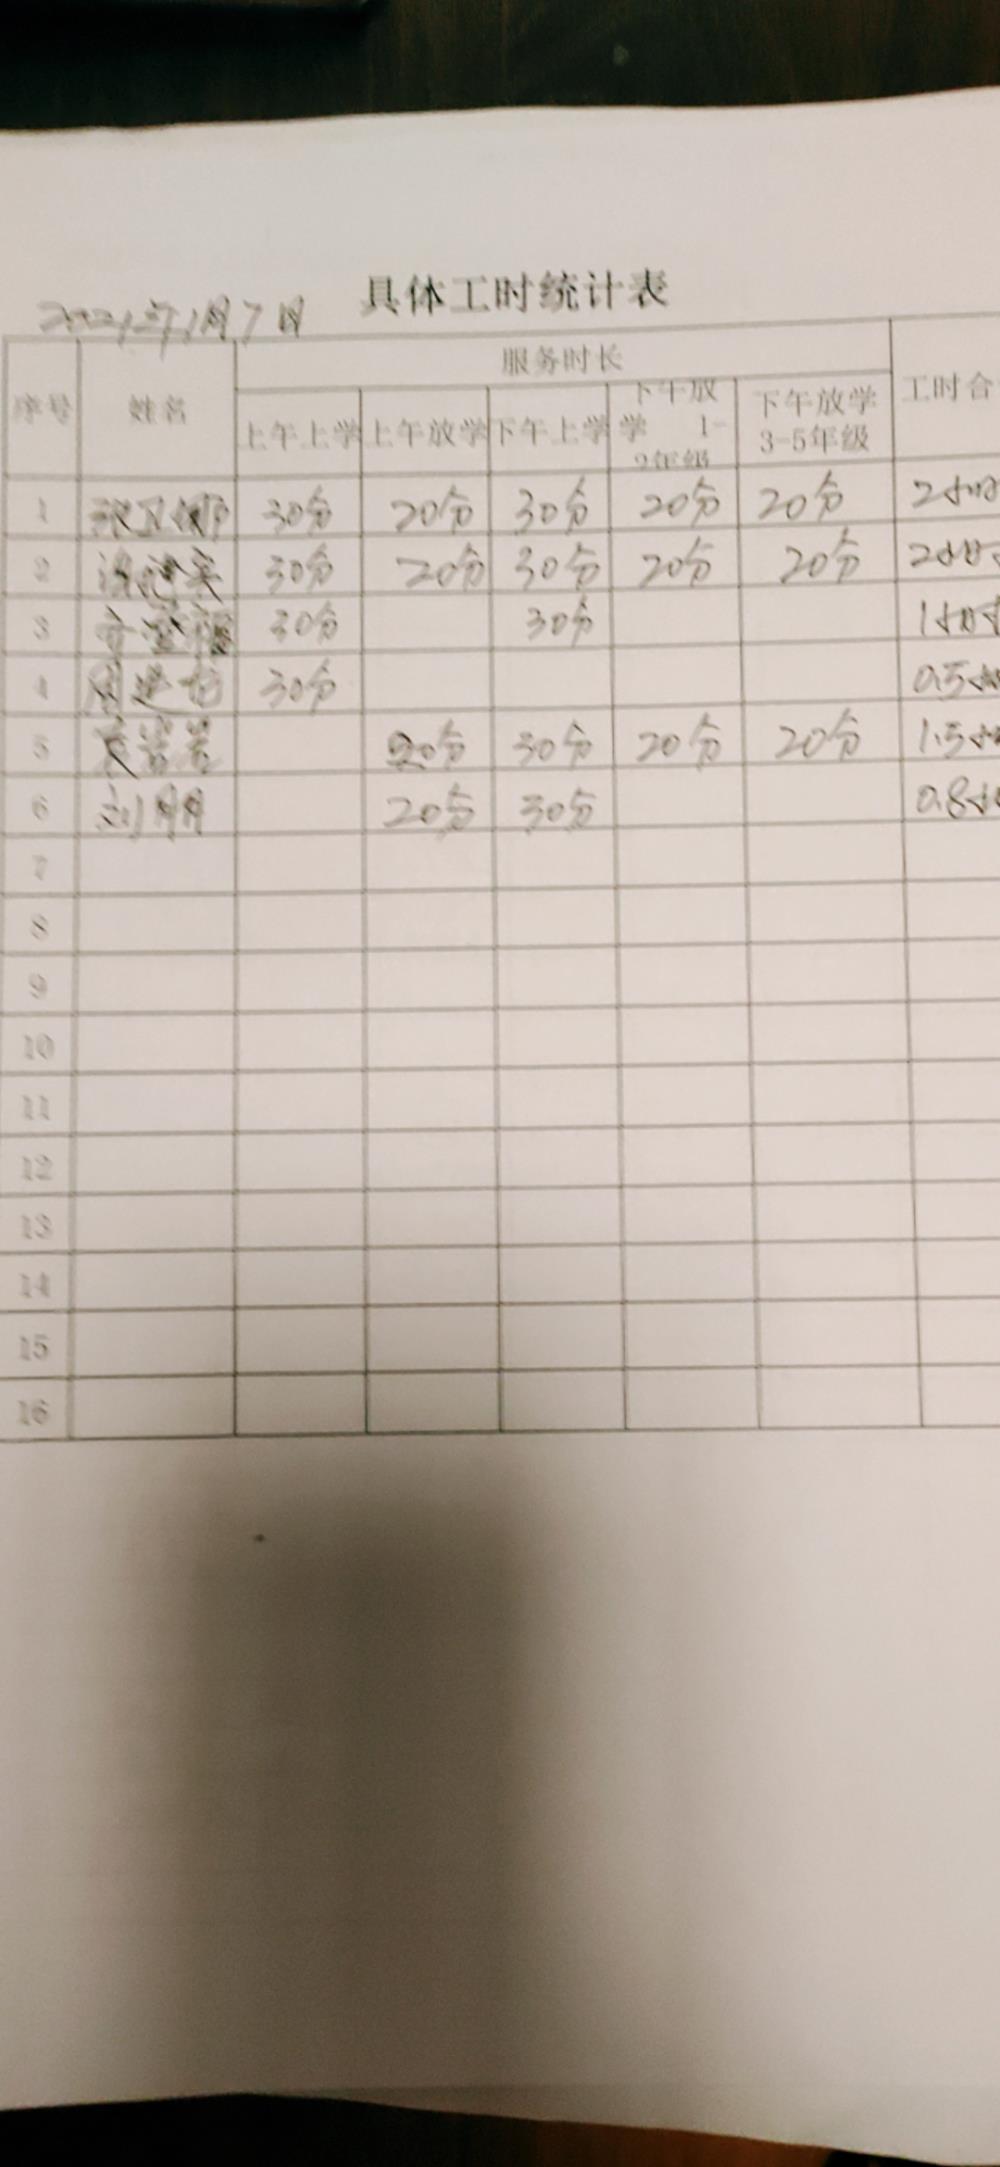 具体工时统计表
2021年1月7日
序号 姓名 服务时长 工时合
上午上学 上午放学 下午上学 下午放学 1-2年级 下午放学3-5年级
1 30分 20分 30分 20分 20分 2小时
2 30分 20分 30分 20分 20分 2小时
3 30分 30分 1小时
4 30分 0.5小
5 20分 30分 20分 20分 1.5小
6 刘朋 20分 30分 0.8小
7
8
9
10
11
12
13
14
15
16